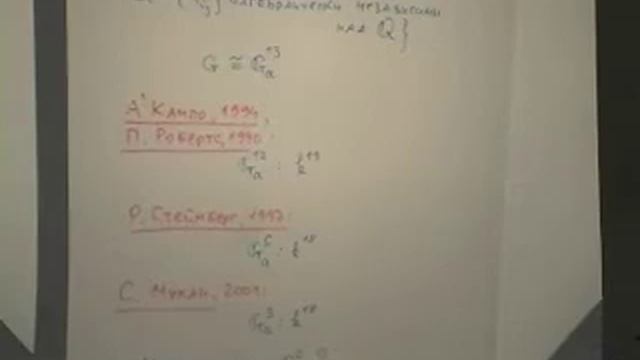 алгебраически независимы
над Q}
G ≅ G_a^13
А'Кампо, 1994,
П. Робертс, 1990:
G_a^12 : k^19
Р. Стейнберг, 1997:
G_a^6 : k^18
С. Мукаи, 2001:
G_a^3 : k^18